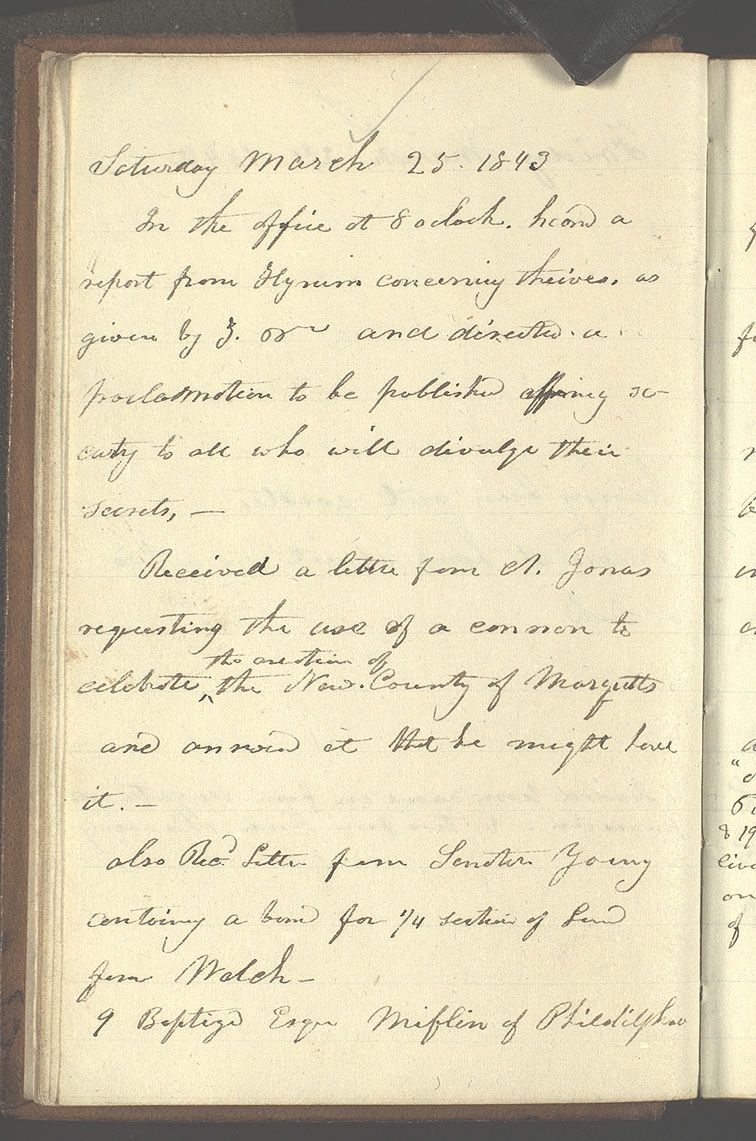 Saturday March 25. 1843
In the office at 8 oclock. heard a
report from Hyrum concerning theives. as
given by Z. and directed a
proclamation to be published offering se-
curity to all who will divulge their
secrets, —
Received a letter from A. Jonas
requesting the use of a cannon to
the creation of
celebrate ^ the New County of Marquitts
and answerd it that he might have
it. —
also Recd Letter from Senator Young
containg a bond for 1/4 section of Land
from Walch —
9 Baptizd Esqr Miflin of Phildilphia